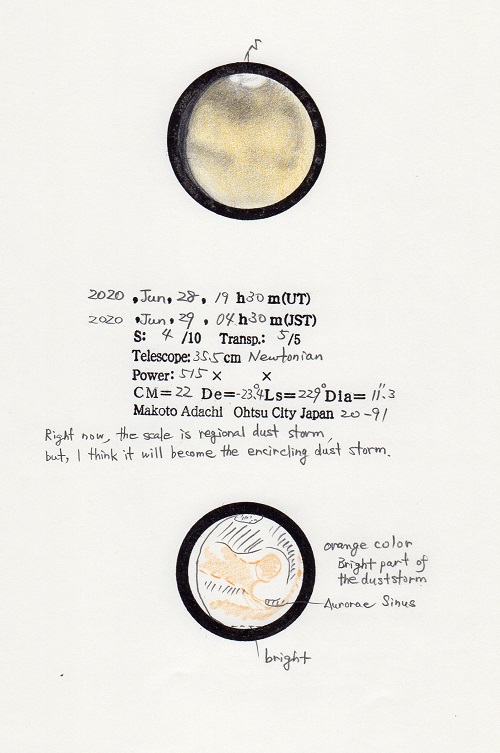 N
2020, Jun, 28, 19 h 30 m (UT)
2020, Jun, 29, 04 h 30 m (JST)
S: 4 /10 Transp.: 5/5
Telescope: 35.5 cm Newtonian
Power: 515 × ×
CM = 22 De = -23.4° Ls = 229° Dia = 11".3
Makoto Adachi Ohtsu City Japan 20-91
Right now, the scale is regional dust storm,
but, I think it will become the encircling dust storm.
orange color
Bright part of
the duststorm
Aurorae Sinus
bright